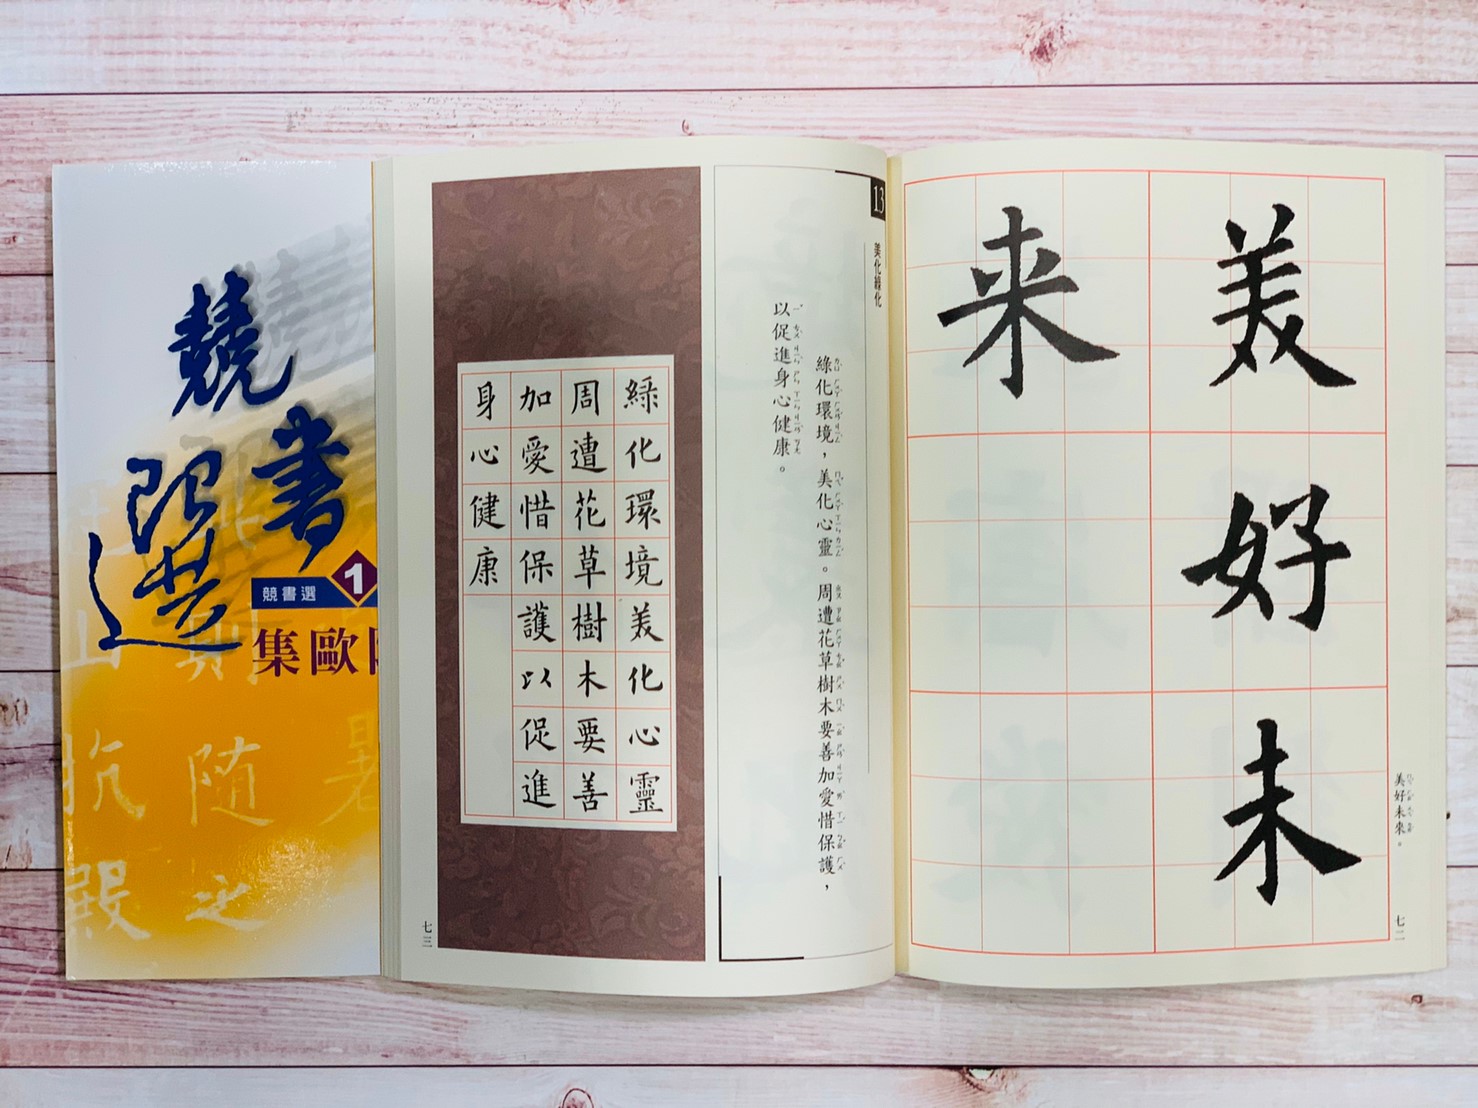 美好未
来
美好未來。
七二
13
美化綠化
綠化環境，美化心靈。周遭花草樹木要善加愛惜保護，
以促進身心健康。
綠化環境美化心靈
周遭花草樹木要善
加愛惜保護以促進
身心健康
七三
競書
選
競書選
1
集歐陽
抗
殿
随
之